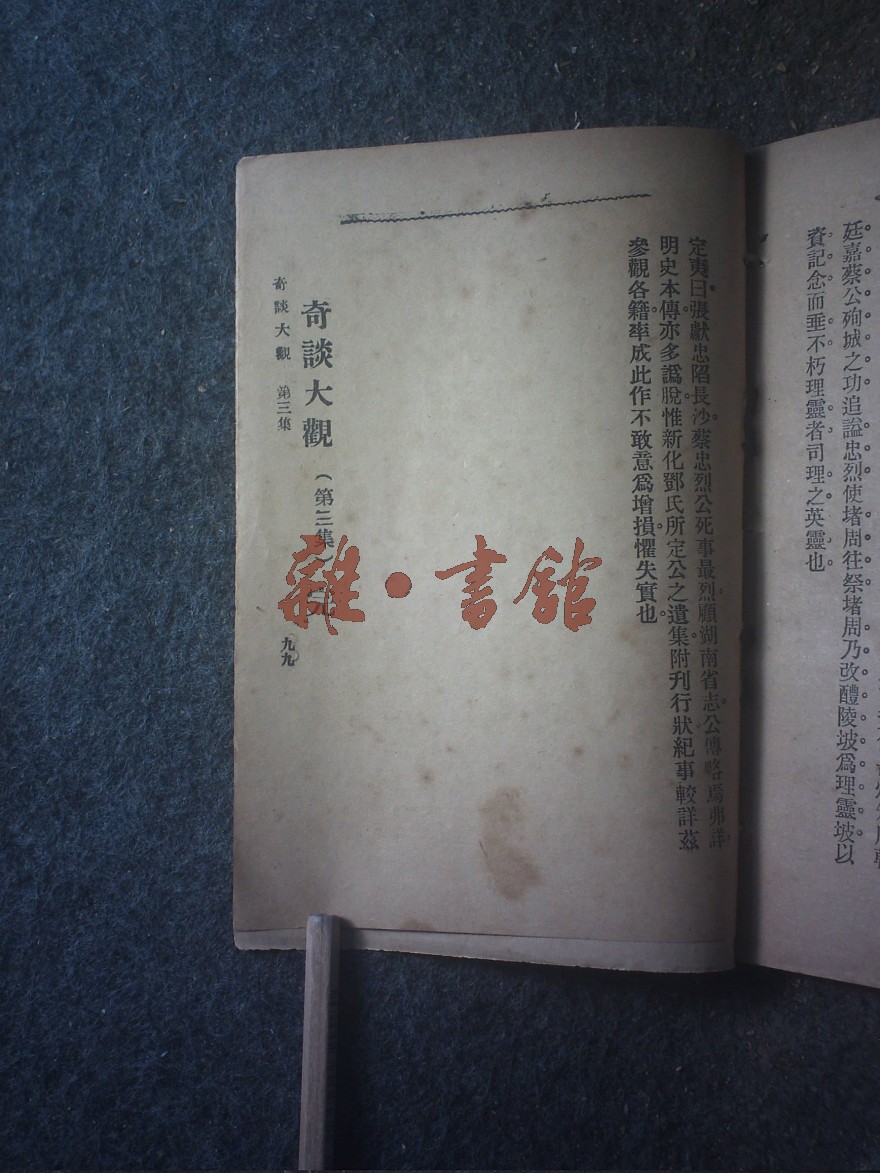 廷嘉蔡公殉城之功追謚忠烈使堵周往祭堵周乃改醴陵坡爲理靈坡以
資記念而垂不朽理靈者司理之英靈也
定夷曰張獻忠陷長沙蔡忠烈公死事最烈顧湖南省志公傳略焉弗詳
明史本傳亦多譌脫惟新化鄧氏所定公之遺集附刊行狀紀事較詳茲
參觀各籍率成此作不敢意爲增損懼失實也
奇談大觀(第三集)
奇談大觀 第三集
九九
雜·書館